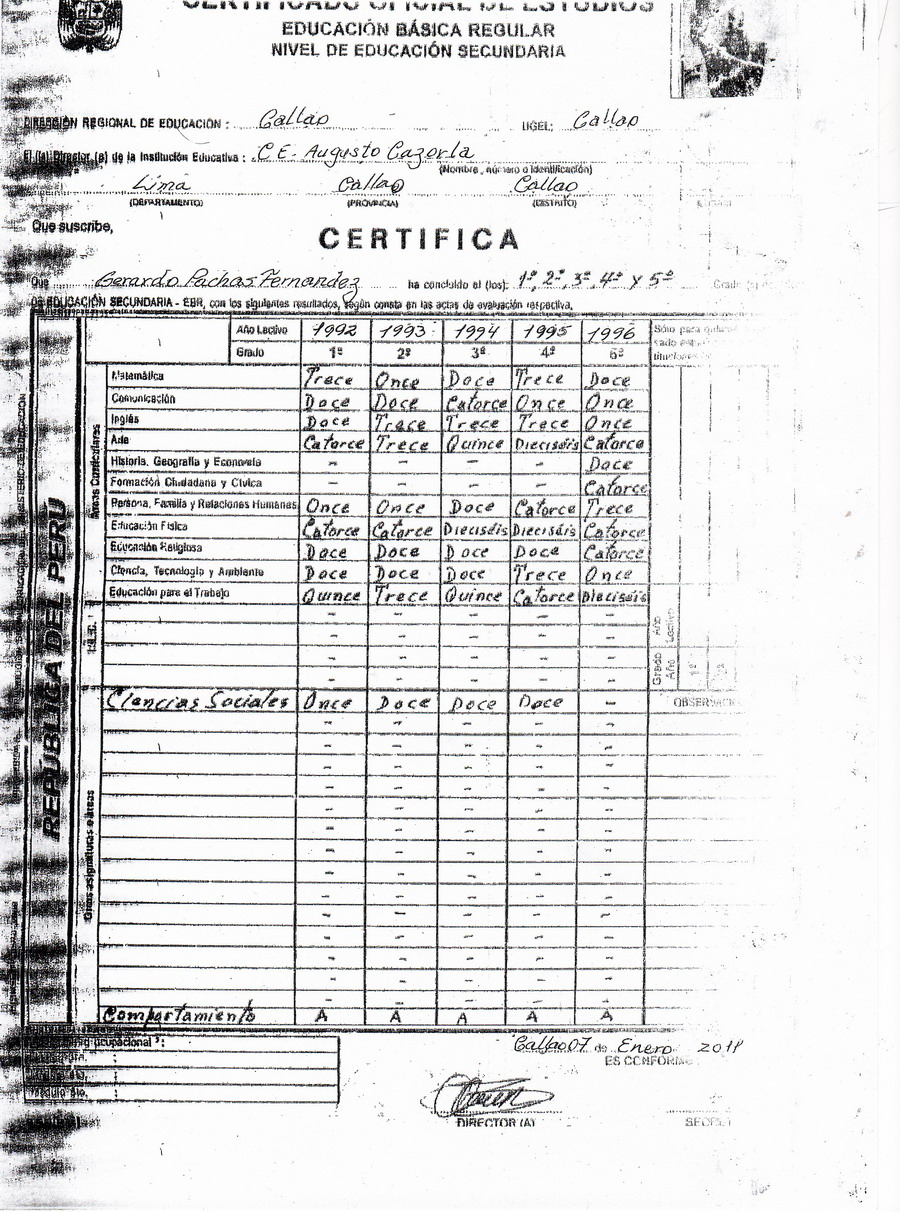 CERTIFICADO OFICIAL DE ESTUDIOS
EDUCACIÓN BÁSICA REGULAR
NIVEL DE EDUCACIÓN SECUNDARIA
DIRECCIÓN REGIONAL DE EDUCACIÓN : Callao UGEL: Callao
El (la) Director (a) de la Institución Educativa : C.E. Augusto Cazorla
(Nombre, número o identificación)
Lima Callao Callao
(DEPARTAMENTO) (PROVINCIA) (DISTRITO)
Que suscribe,
CERTIFICA
Que Gerardo Pachas Fernandez ha concluido el (los): 1º, 2º, 3º, 4º y 5º Grado
DE EDUCACIÓN SECUNDARIA - EBR, con los siguientes resultados, según consta en las actas de evaluación respectiva.
Año Lectivo 1992 1993 1994 1995 1996 Sólo para
Grado 1º 2º 3º 4º 5º
REPÚBLICA DEL PERÚ
Áreas Curriculares
Matemática Trece Once Doce Trece Doce
Comunicación Doce Doce Catorce Once Once
Inglés Doce Trece Trece Trece Once
Arte Catorce Trece Quince Dieciséis Catorce
Historia, Geografía y Economía - - - - Doce
Formación Ciudadana y Cívica - - - - Catorce
Persona, Familia y Relaciones Humanas Once Once Doce Catorce Trece
Educación Física Catorce Catorce Dieciséis Dieciséis Catorce
Educación Religiosa Doce Doce Doce Doce Catorce
Ciencia, Tecnología y Ambiente Doce Doce Doce Trece Once
Educación para el Trabajo Quince Trece Quince Catorce Dieciséis
Grado Año Lectivo
Año 1º 2º
Ciencias Sociales Once Doce Doce Doce -
Otras asignaturas o áreas
Comportamiento A A A A A
ocupacional :
Callao 07 de Enero
ES CONFORME
DIRECTOR (A)